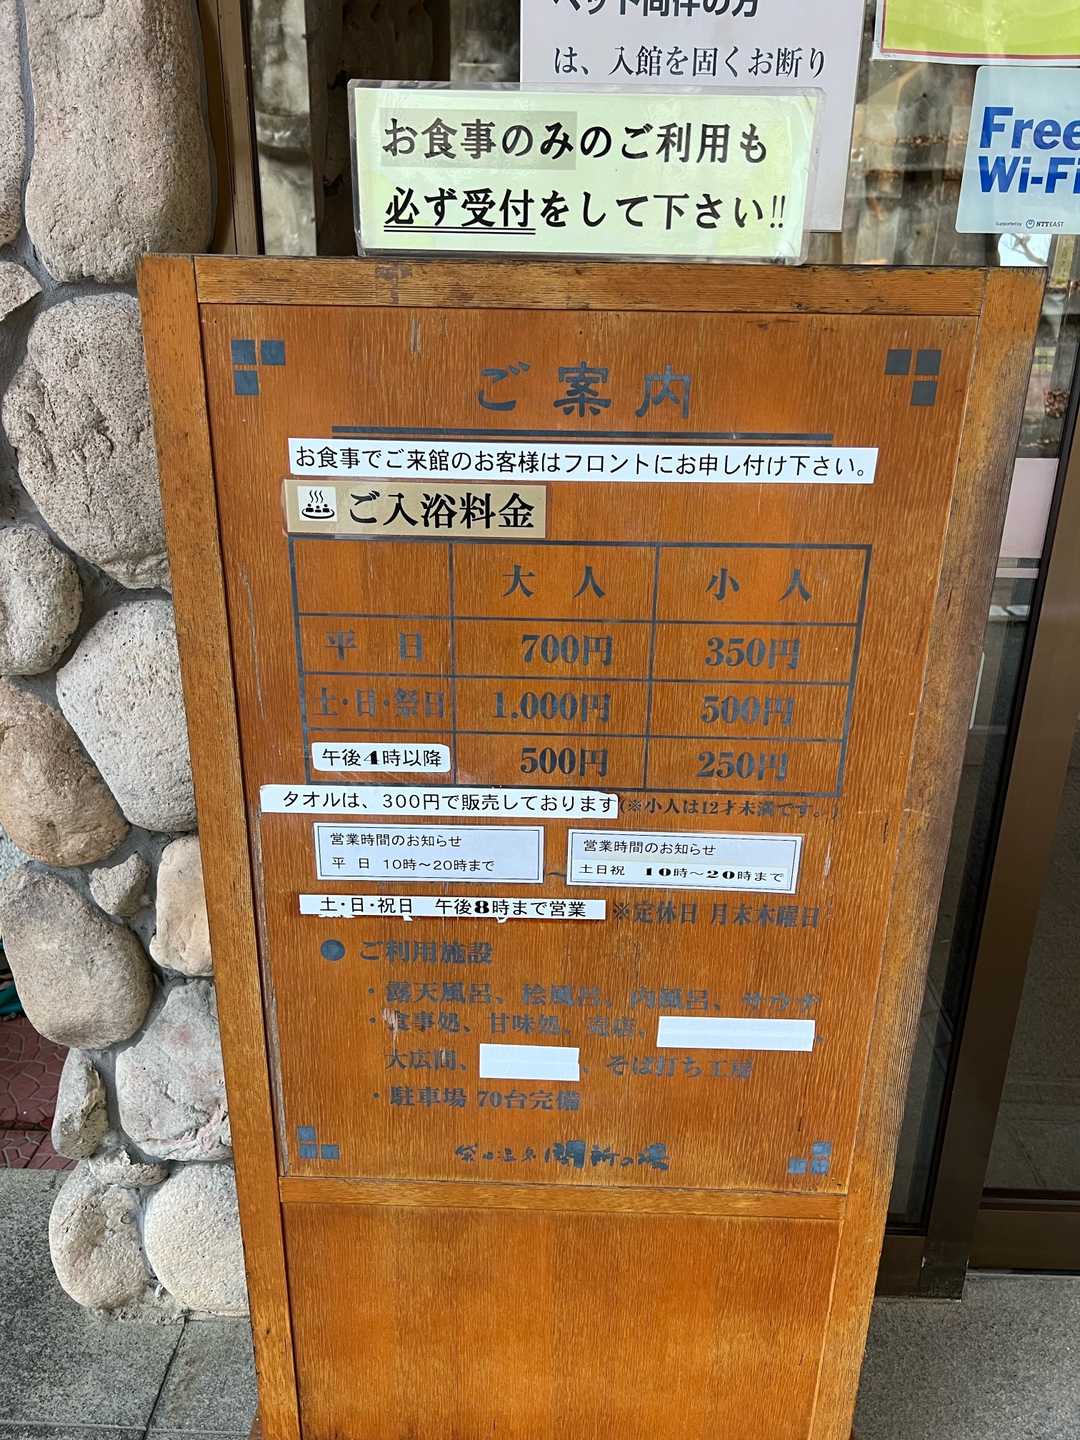 ペット同伴の方
は、入館を固くお断り
Free
Wi-Fi
Supported by NTT EAST
お食事のみのご利用も
必ず受付をして下さい!!
ご案内
お食事でご来館のお客様はフロントにお申し付け下さい。
ご入浴料金
大人 小人
平日 700円 350円
土・日・祭日 1.000円 500円
午後4時以降 500円 250円
タオルは、300円で販売しております (※小人は12才未満です。)
営業時間のお知らせ
平 日 10時～20時まで
～
営業時間のお知らせ
土日祝 10時～20時まで
土・日・祝日 午後8時まで営業 ※定休日 月末木曜日
● ご利用施設
・露天風呂、桧風呂、内風呂、サウナ
・食事処、甘味処、売店、
大広間、 、そば打ち工房
・駐車場 70台完備
温泉 関所の湯